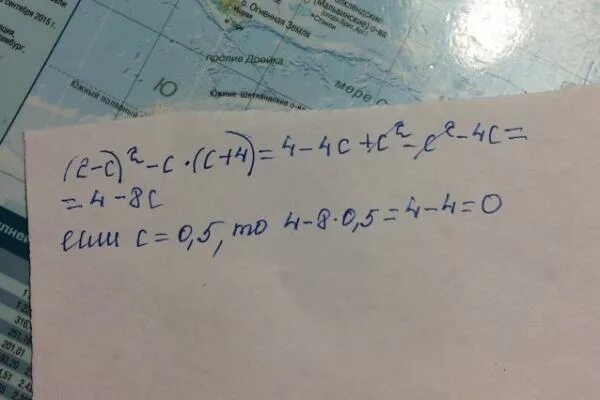 сентября 2015 г.
о. Огненная Земля
(Мальвинские) о-ва
пролив Дрейка
Ю
море С
Южный полярный
Южные Шетландские о-ва
(2-c)² - c · (c+4) = 4 - 4c + c² - c² - 4c =
= 4 - 8c
если c = 0,5, то 4 - 8·0,5 = 4 - 4 = 0
316
251.
201.01